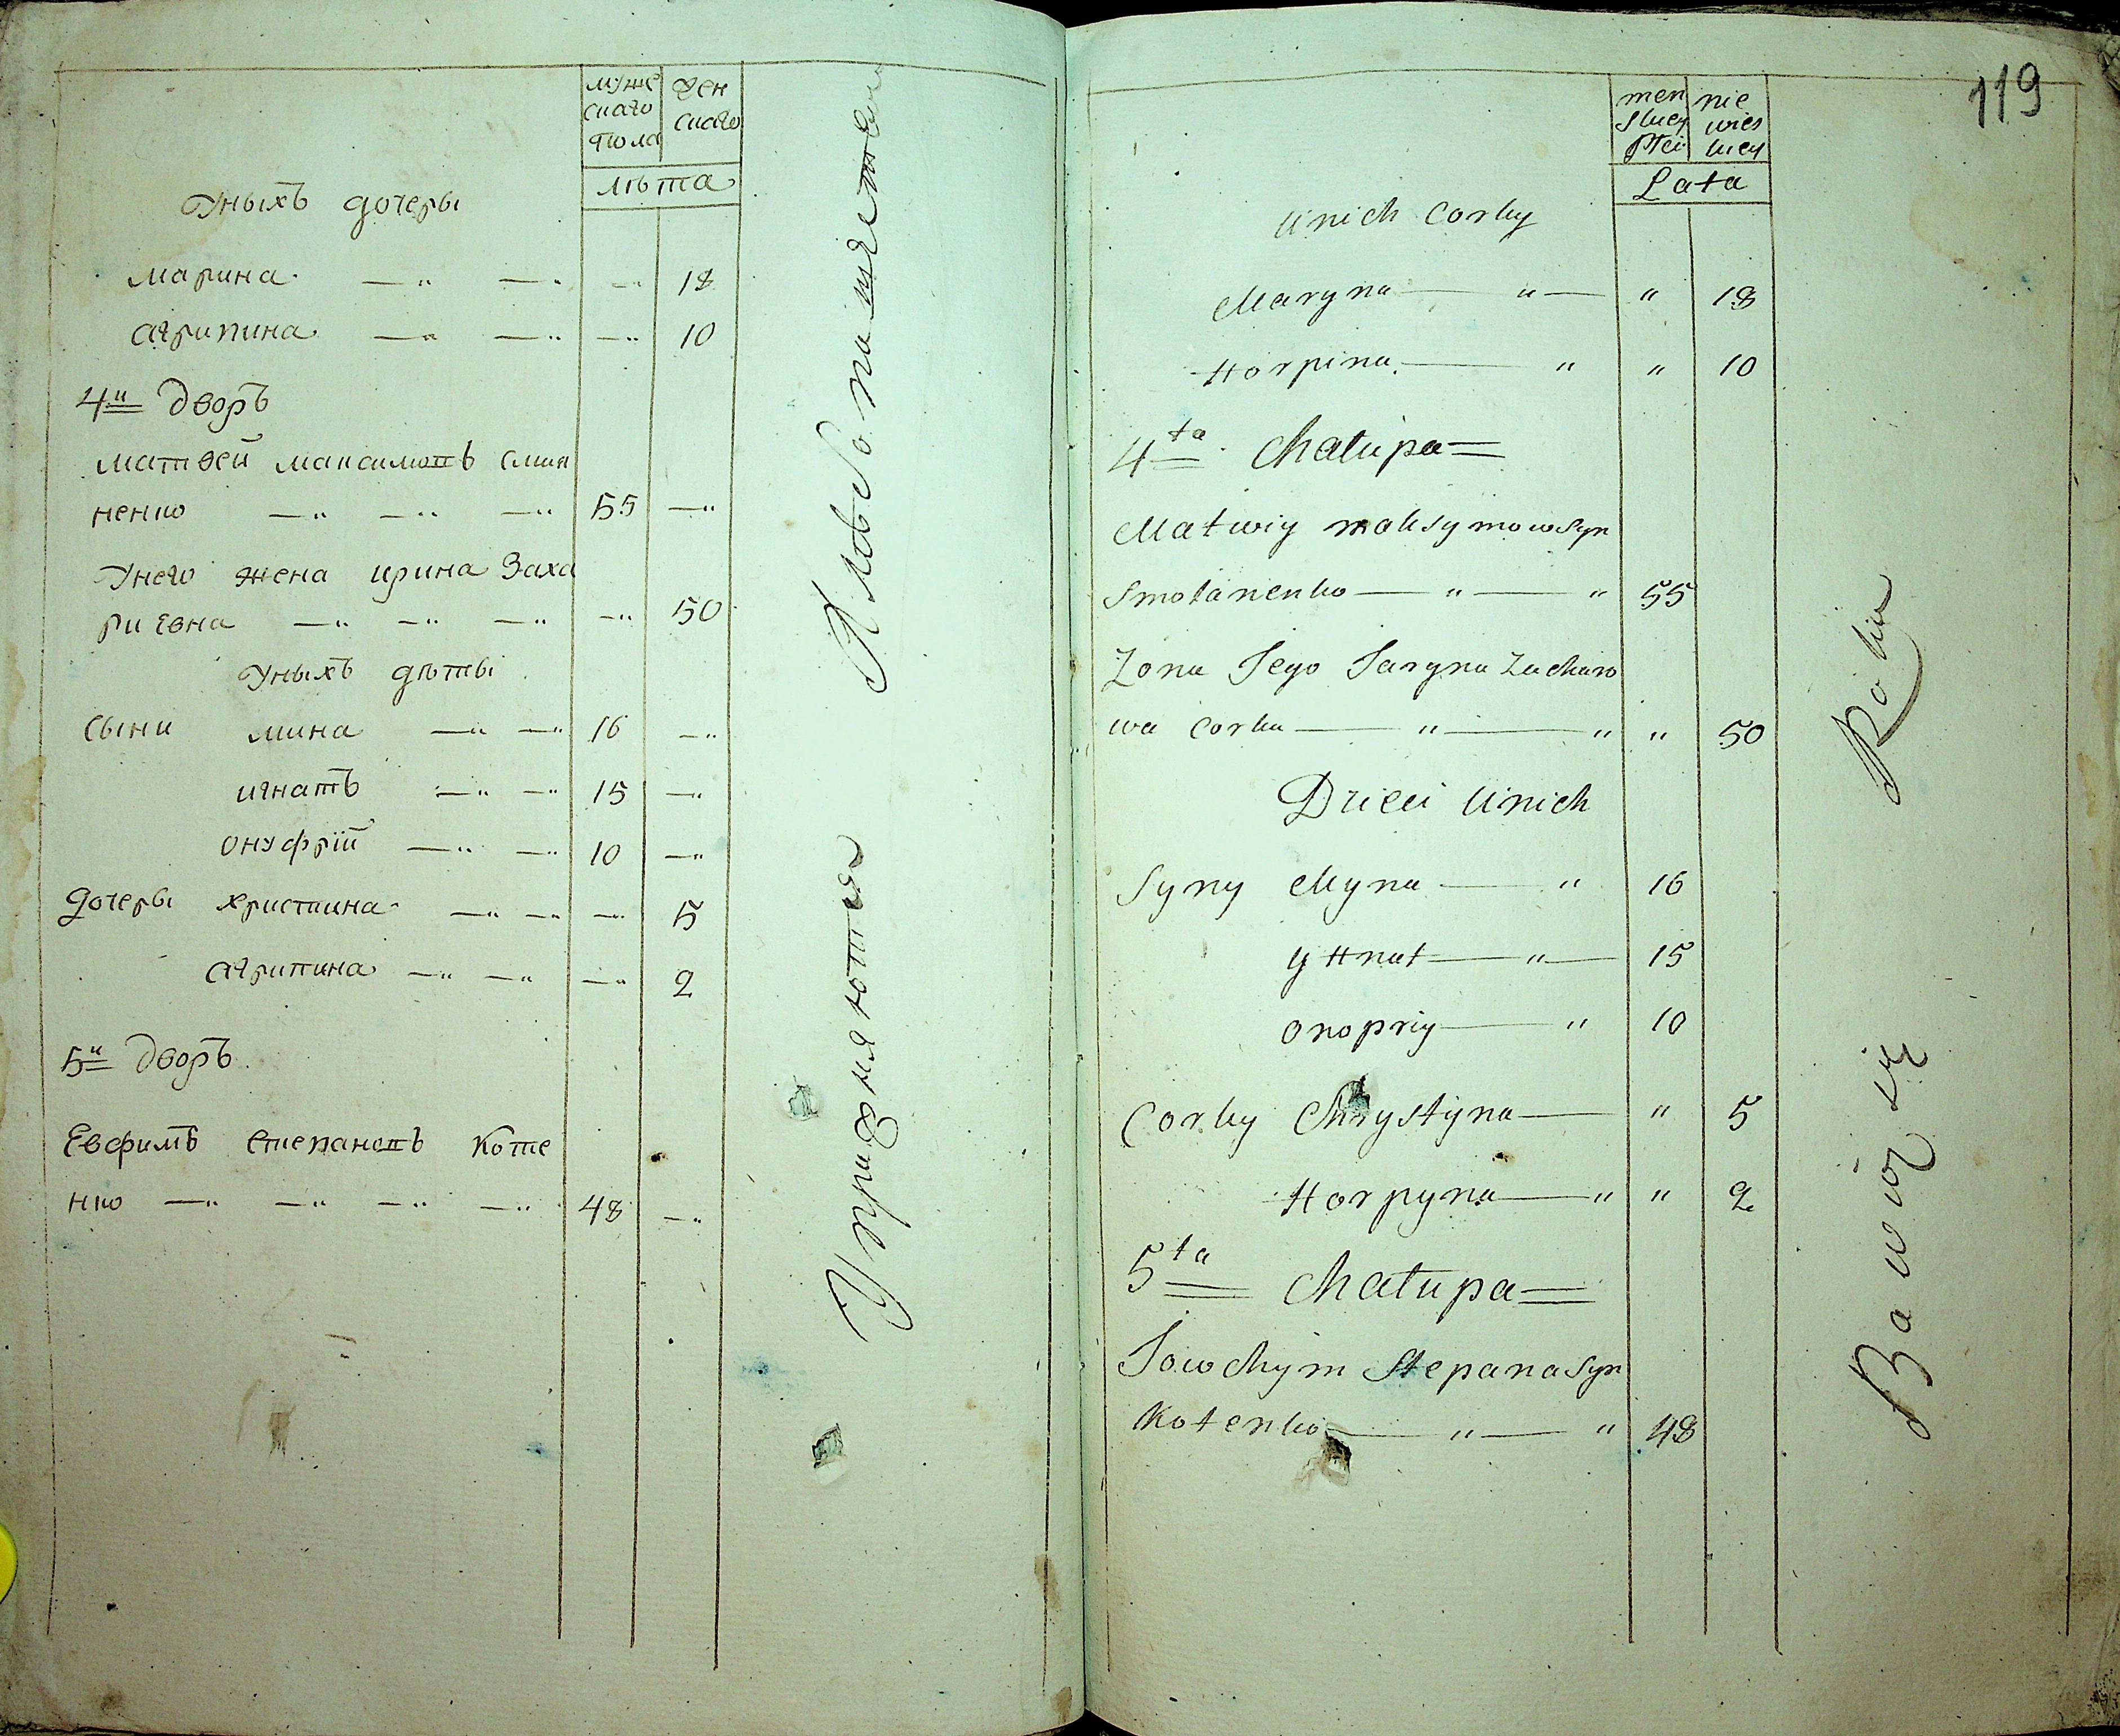 муже
скаго
пола
жен
скаго
лѣта
Уныхъ дочеры
марина 18
агрипина 10
4й дворъ
матвей максимовъ смик
ненко 55
Унего жена ирина Заха
риевна 50
Уныхъ дѣты
сыни мина 16
игнатъ 15
онуфрій 10
дочеры христина 5
агрипина 2
5й дворъ
Евфимъ Степановъ Коте
нко 48
Упражняются Хлебопашетвом
119
men
skiey
Płci
nie
wies
kiey
Lata
Unich Corky
Maryna " " 18
Horpina " " 10
4ta Chałupa
Matwiy maksymow Syn
Smołanenko " " 55
Zona Jego Jaryna Zacharo
wa Corka " " " 50
Dzieci Unich
Syny Myna " 16
yHnat " 15
Onopriy " 10
Corky Chrystyna " 5
Horpyna " " 2
5ta Chałupa
Jowchym Stepana Syn
Kotenko " " 48
Bawią się Rolą